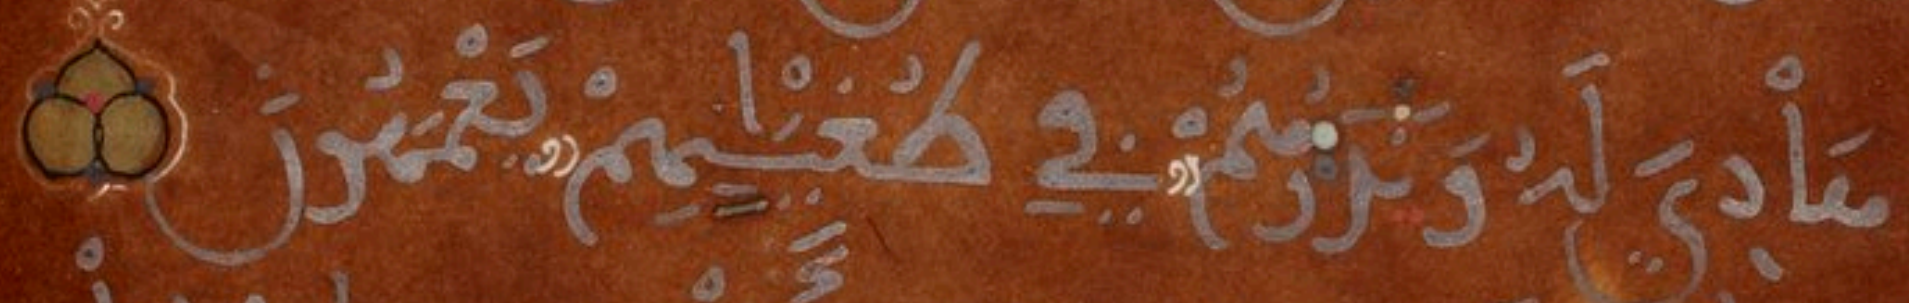 هَادِيَ لَهُۥ وَنَذَرُهُمْ فِي طُغْيَٰنِهِمْ يَعْمَهُونَ